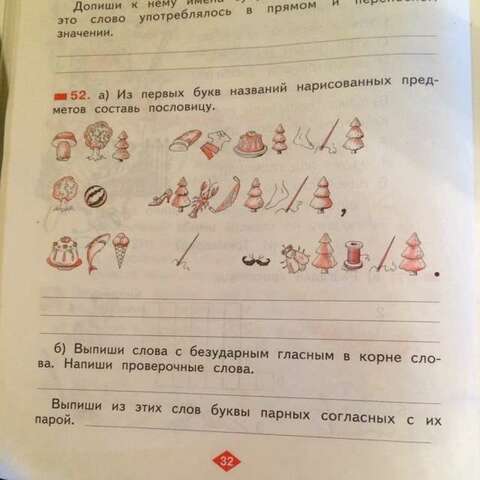 Допиши к нему имена
это слово употреблялось в прямом и
значении.
52. а) Из первых букв названий нарисованных пред-
метов составь пословицу.
,
.
б) Выпиши слова с безударным гласным в корне сло-
ва. Напиши проверочные слова.
Выпиши из этих слов буквы парных согласных с их
парой.
32